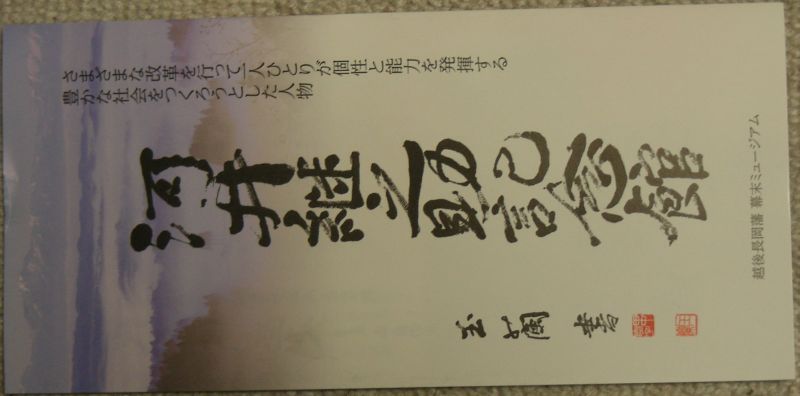 さまざまな改革を行って一人ひとりが個性と能力を発揮する
豊かな社会をつくろうとした人物
河井継之助記念館
玉蘭 書
越後長岡藩 幕末ミュージアム